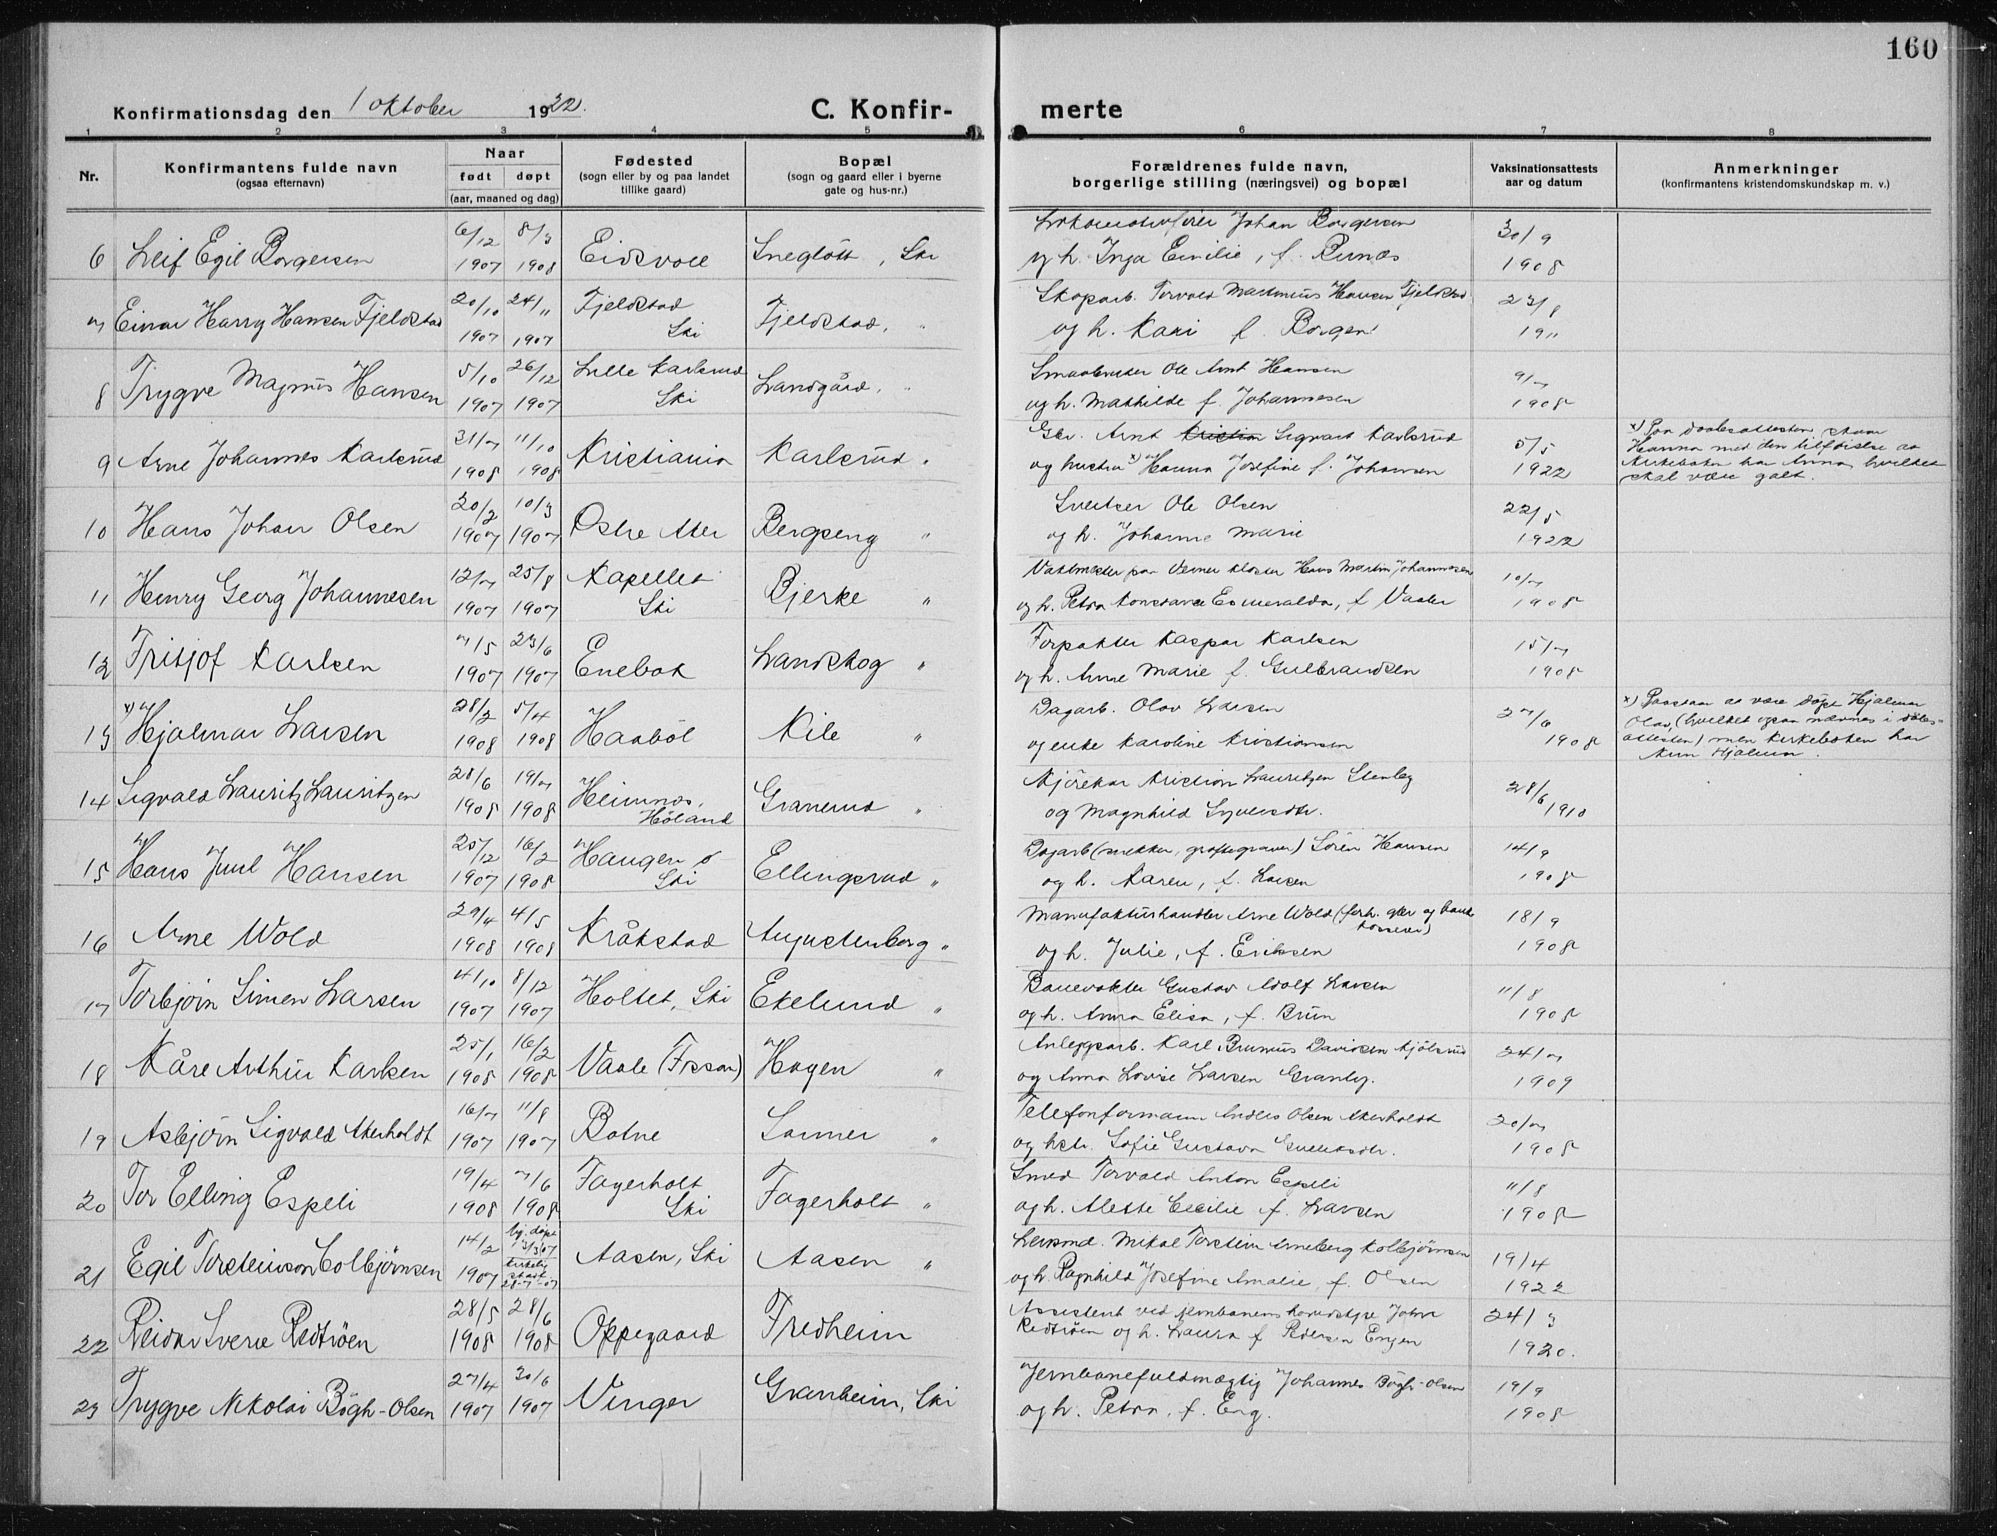 160
Konfirmationsdag den 1 oktober 1922.
C. Konfirmerte
1 2 3 4 5 6 7 8
Nr.
Konfirmantens fulde navn
(ogsaa efternavn)
Naar
født døpt
(aar, maaned og dag)
Fødested
(sogn eller by og paa landet
tillike gaard)
Bopæl
(sogn og gaard eller i byerne
gate og hus-nr.)
Forældrenes fulde navn,
borgerlige stilling (næringsvei) og bopæl
Vaksinationsattests
aar og datum
Anmerkninger
(konfirmantens kristendomskundskap m. v.)
6 Leif Egil Borgersen 6/12 1907 8/3 1908 Eidsvoll Sneglött, Ski Lokomotivfører Johan Borgersen
og h. Inga Emilie, f. Rünæs 30/9 1908
7 Einar Harry Hansen Fjeldstad 20/10 1907 24/11 1907 Fjeldstad Ski Fjeldstad, " Skoparb. Torvald Martinius Hansen Fjeldstad
og h. Kari f. Borgen 23/8 1911
8 Trygve Magnus Hansen 5/10 1907 26/12 1907 Lille Karlsrud Ski Landgård, " Smaabruker Ole Arnt Hansen
og h. Mathilde f. Johannesen 9/7 1908
9 Arne Johannes Karlsrud 31/7 1908 11/10 1908 Kristiania Karlsrud " Gbr. Arnt Kristian Sigvart Karlsrud
og hustru x) Hanna Josefine f. Johansen 5/5 1922
x) Paa daabsattesten staar
Hanna med den tilføielse at
kirkeboken har Anna, hvilket
skal være galt.
10 Hans Johan Olsen 20/2 1907 10/3 1907 Østre Aker Bergseng " Sveitser Ole Olsen
og h. Johanne Marie 22/5 1922
11 Henry Georg Johannesen 12/7 1907 25/8 1907 Kapellet Ski Bjerke " Vaktmester paa Verner kloster Hans Martin Johannesen
og h. Petra Konstance Esmeralda, f. Vaaler 10/7 1908
12 Fritjof Karlsen 7/5 1907 23/6 1907 Enebak Landskog " Forpakter Kaspar Karlsen
og h. Anne Marie f. Gulbrandsen 15/7 1908
13 x) Hjalmar Larsen 28/2 1908 5/4 1908 Haaböl Kile " Dagarb. Olav Larsen
og enke Karoline Kristiansen 27/6 1908
x) Paastaar at være döpt Hjalmar
Olav, (hvilket ogsaa nævnes i dåbs-
attesten) men kirkeboken har
kun Hjalmar.
14 Sigvald Lauritz Lauritzen 28/6 1908 19/7 1908 Heimnes, Höland Granerud " Kjörekar Kristian Lauritzen Stenby
og Magnhild Syversdtr. 28/6 1910
15 Hans Juul Hansen 25/12 1907 16/2 1908 Haugen ö Ski Ellingsrud " Dagarb (snekker, grøftegraver) Sören Hansen
og h. Karen, f. Larsen 14/9 1908
16 Arne Wold 29/4 1908 4/5 1908 Kråkstad Augustenborg " Manufakturhandler Arne Wold (forh. gbr og bank
kasserer)
og h. Julie, f. Eriksen 18/9 1908
17 Torbjörn Simen Larsen 4/10 1907 8/12 1907 Holtet, Ski Ekelund " Banevokter Gustav Adolf Larsen
og h. Anna Elisa, f. Brün 11/8 1908
18 Kåre Arthur Karlsen 25/1 1908 16/2 1908 Vaale (Fossan) Hagen " Anlegpsarb. Karl Brunius Davidsen Kjölsrud
og Anna Lovise Larsen Granby. 24/7 1909
19 Asbjörn Sigvald Akerholdt 16/7 1907 11/8 1907 Botne Sanner " Telefonformann Anders Olsen Akerholdt
og hstr. Sofie Gustava Gulliksdtr. 20/7 1908
20 Tor Elling Espeli 19/4 1908 7/6 1908 Fagerholt Ski Fagerholt " Smed Torvald Anton Espeli
og h. Alette Cecilie f. Larsen 11/8 1908
21 Egil Torsteinson Colbjörnsen 14/2 1907 hj. døpt 13/3 07 kirkelig stadf. 28-7-07 Aasen, Ski Aasen " Lensmd. Mikal Torstein Arneberg Kolbjörnsen
og h. Ragnhild Josefine Amalie, f. Olsen 19/4 1922
22 Reidar Sverre Redtröen 28/5 1908 28/6 1908 Oppegaard Fredheim Assistent ved jernbanens hovedstyre Johan
Redtröen og h. Laura f. Pedersen Engen 24/3 1920.
23 Trygve Nikolai Bögh-Olsen 27/4 1907 30/6 1907 Vinger Granheim, Ski Jernbanefuldmægtig Johannes Bögh-Olsen
og h. Petra, f. Eng. 19/9 1908